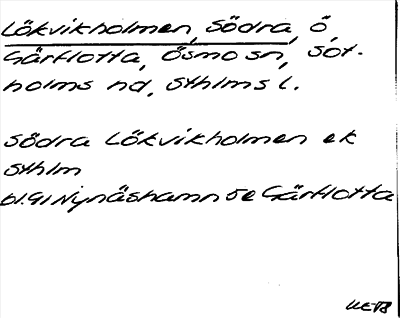 Lökvikholmen, Södra, ö,
Gärflotta, Ösmo sn, Sot-
holms hd, Sthlms l.
Södra Lökvikholmen ek
Sthlm
bl. 91 Nynäshamn 5e Gärflotta